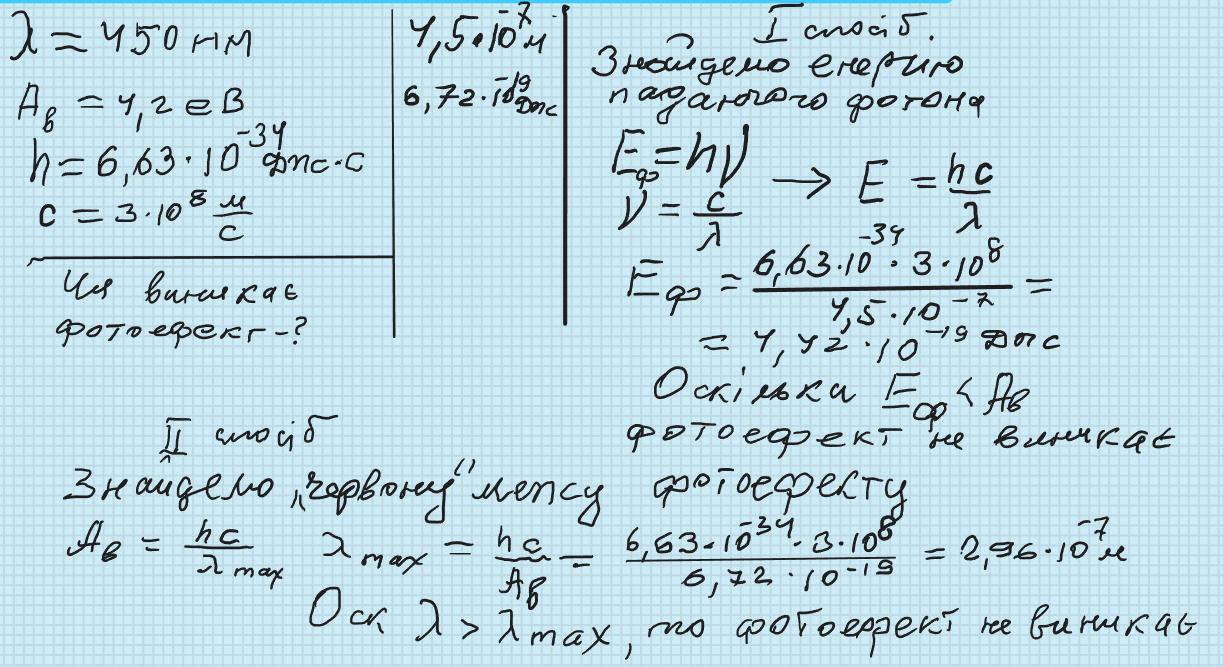 λ = 450 нм
A_в = 4,2 еВ
h = 6,63·10^-34 Дж·с
c = 3·10^8 м/с
Чи виникає
фотоефект-?
4,5·10^-7 м
6,72·10^-19 Дж
I спосіб.
Знайдемо енергію
падаючого фотона
E_ф = hν
ν = c/λ → E = hc/λ
E_ф = (6,63·10^-34 · 3·10^8)/(4,5·10^-7) =
= 4,42·10^-19 Дж
Оскільки E_ф < A_в
фотоефект не виникає
II спосіб
Знайдемо „червону" межу фотоефекту
A_в = hc/λ_max λ_max = hc/A_в = (6,63·10^-34 · 3·10^8)/(6,72·10^-19) = 2,96·10^-7 м
Оск λ > λ_max, то фотоефект не виникає